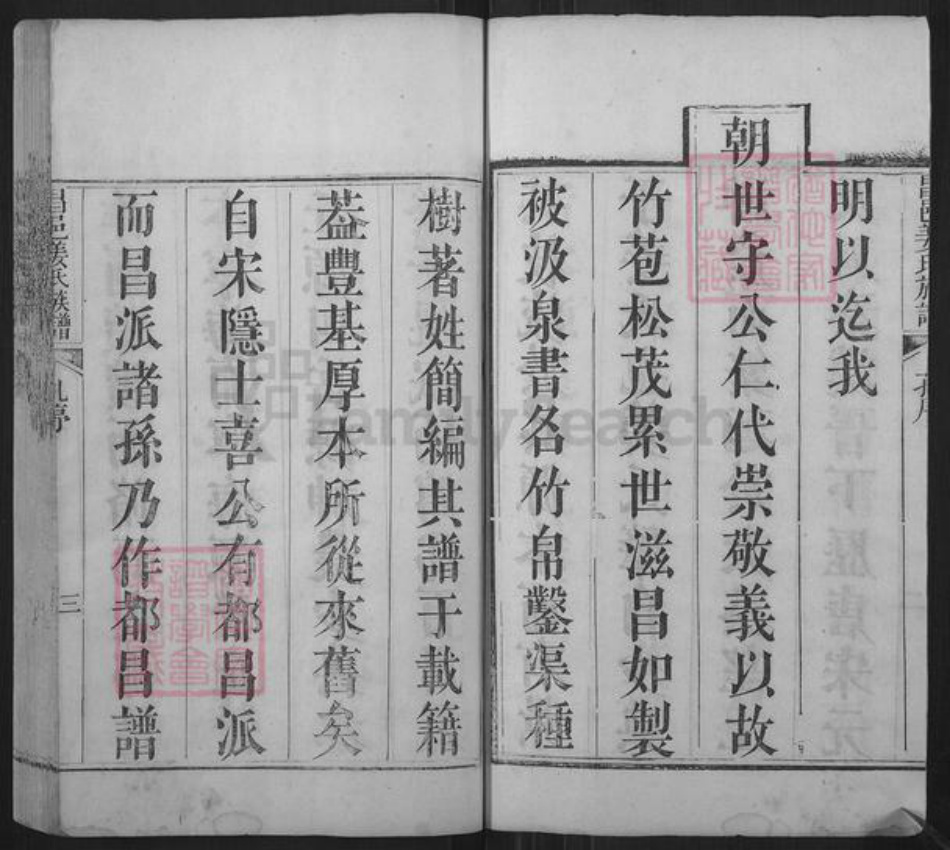 明以迄我
朝世守公仁代崇敬義以故
竹苞松茂累世滋昌如製
被汲泉書名竹帛鑿渠種
樹著姓簡編其譜于載籍
葢豐基厚本所從來舊矣
自宋隱士喜公有都昌派
而昌派諸孫乃作都昌譜
昌邑姜氏族譜
三
FamilySearch